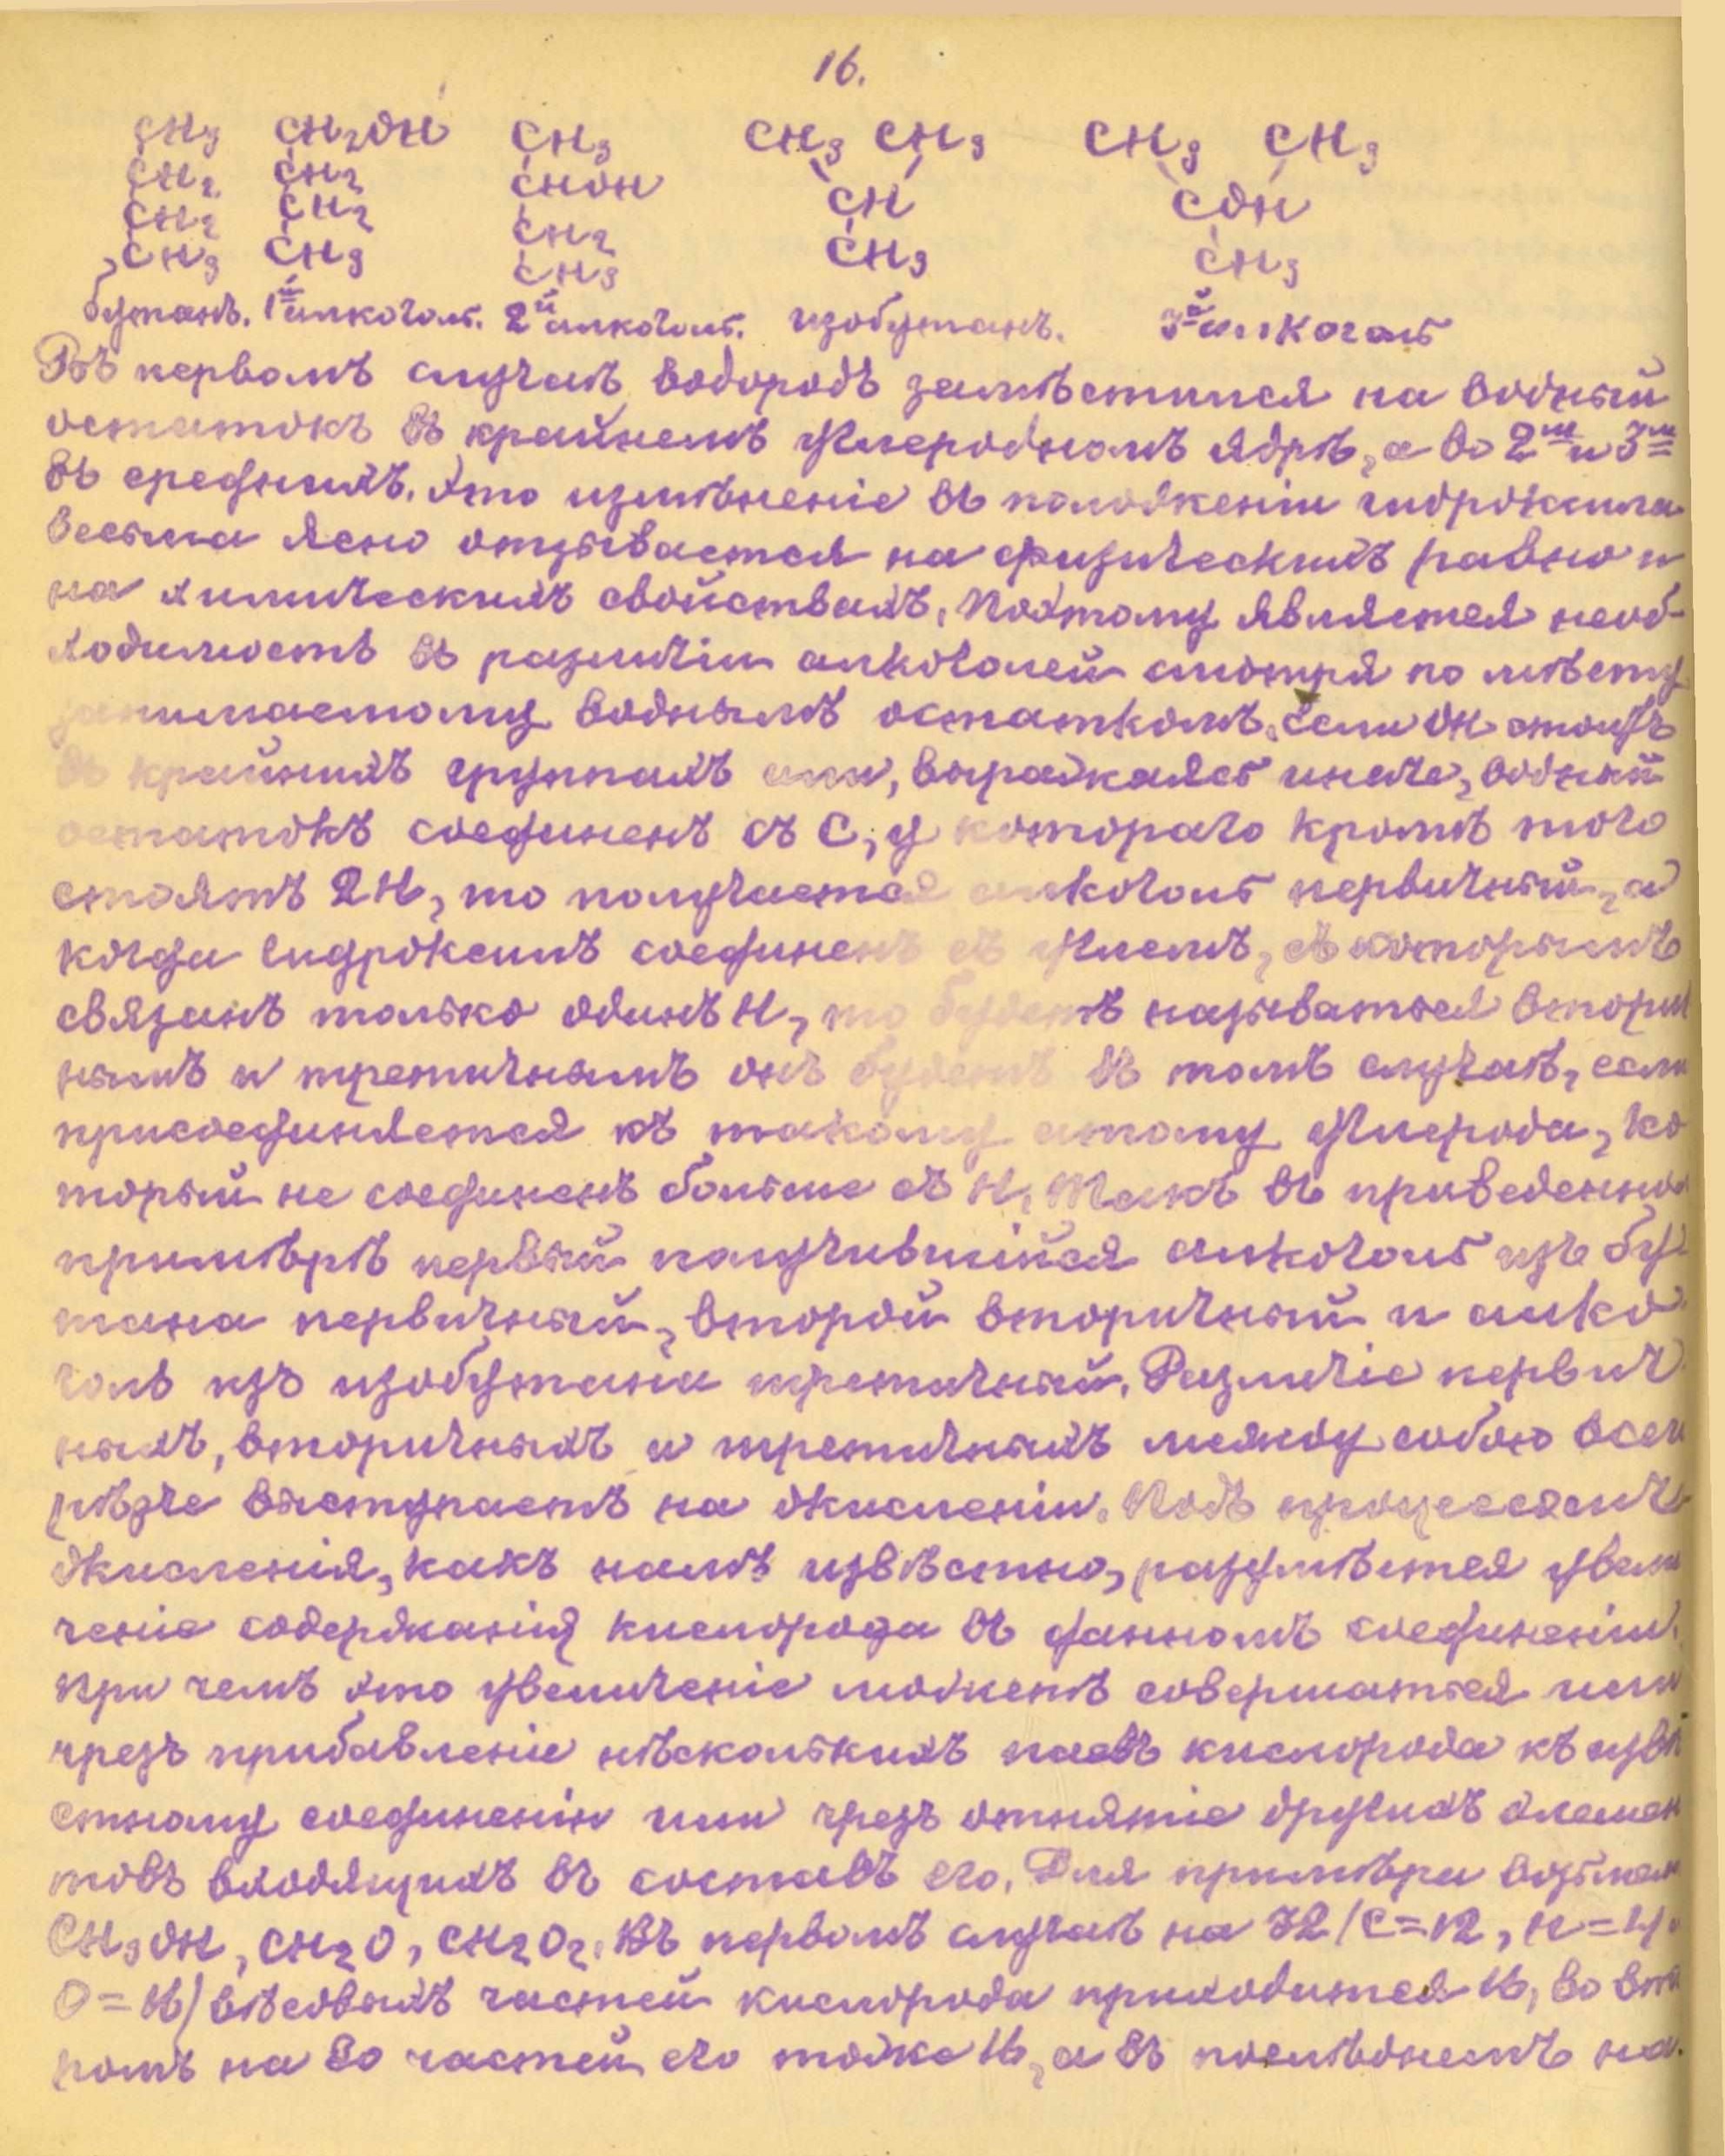 16.
CH3 CH2OH CH3 CH3 CH3 CH3 CH3
CH2 CH2 CHOH CH COH
CH2 CH2 CH2 CH3 CH3
CH3 CH3 CH3
бутанъ. 1й алкоголь. 2й алкоголь. изобутанъ. 3й алкоголь
Въ первомъ случаѣ водородъ замѣстился на водный
остатокъ въ крайнемъ углеродномъ ядрѣ, а во 2мъ и 3мъ
въ среднихъ. Это измѣненіе въ положеніи гидроксила
весьма ясно отзывается на физическихъ равно и
на химическихъ свойствахъ. Поэтому является необ-
ходимость въ различіи алкоголей смотря по мѣсту
занимаемому воднымъ остаткомъ. если OH стоитъ
въ крайнихъ группахъ или, выражаясь иначе, водный
остатокъ соединенъ съ C, у котораго кромѣ того
стоятъ 2H, то получается алкоголь первичный, а
когда гидроксилъ соединенъ съ углемъ, съ которымъ
связанъ только одинъ H, то будетъ называться вторич
нымъ и третичнымъ онъ будетъ въ томъ случаѣ, если
присоединяется къ такому атому углерода, ко
торый не соединенъ больше съ H. Такъ въ приведенно
примѣрѣ первый получившійся алкоголь изъ бу
тана первичный, второй вторичный и алко
голь изъ изобутана третичный. Различіе первич
ныхъ, вторичныхъ и третичныхъ между собою всего
рѣзче выступаетъ на окисленіи. Подъ процессомъ
окисленія, какъ намъ извѣстно, разумѣется увели
ченіе содержанія кислорода въ данномъ соединеніи.
При чемъ это увеличеніе можетъ совершаться или
чрезъ прибавленіе нѣсколькихъ паевъ кислорода къ извѣ
стному соединенію или чрезъ отнятіе другихъ элемен
товъ входящихъ въ составъ его. Для примѣра возьмем
CH3OH, CH2O, CH2O2. Въ первомъ случаѣ на 32 (C=12, H=4,
O=16) вѣсовыхъ частей кислорода приходится 16, во вто
ромъ на 30 частей его тоже 16, а въ послѣднемъ на